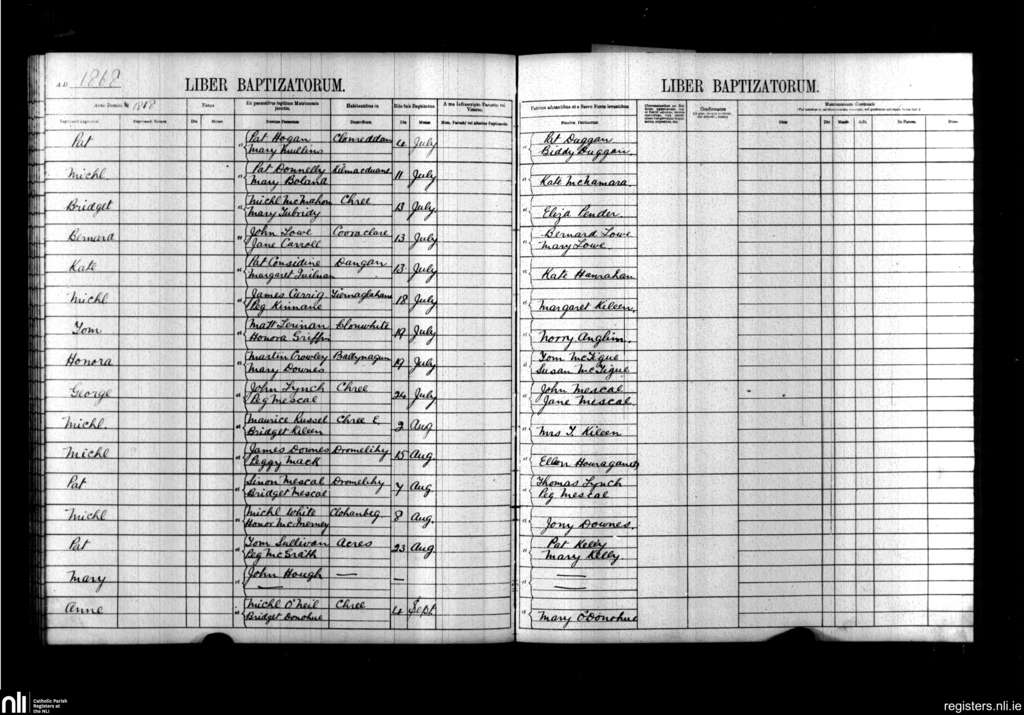 A.D. 1868
LIBER BAPTIZATORUM.
LIBER BAPTIZATORUM.
Anno Domini 1868
Pat
Pat Hogan Clonreddan 4 July
Mary Mullins
Pat Duggan
Biddy Duggan.
Michl
Pat Donnelly Kilmacduane 11 July
Mary Boland
Kate McNamara.
Bridget
Michl McMahon Chree 13 July
Mary Tubridy
Eliza Pender.
Bernard
John Lowe Cooraclare 13 July
Jane Carroll
Bernard Lowe
Mary Lowe
Kate
Pat Considine Dangan 13 July
Margaret
Kate Hanrahan
Michl
James Carrig 18 July
Peg Kinnane
Margaret Kileen.
Tom
Matt Lernan Clonwhite 19 July
Honora Griffin
Norry Anglim.
Honora
Martin Crowley Ballynagun 19 July
Mary Downes
Tom McTigue
Susan McTigue
George
John Lynch Chree 24 July
Peg Mescal
John Mescal
Jane Mescal
Michl.
Maurice Russel Chree E. 2 Aug
Bridget Kileen
Mrs T. Kileen
Michl
James Downes Dromelihy 15 Aug.
Peggy Mack
Ellen
Pat
Sinon Mescal Dromelihy 7 Aug
Bridget Mescal
Thomas Lynch
Peg Mescal
Michl
Michl White Clohanbeg 8 Aug.
Honor McInerney
Jony Downes.
Pat
Tom Sullivan Acres 23 Aug
Peg McGrath
Pat Kelly
Mary Kelly.
Mary
John Hough — —
—
—
—
Anne
Michl O'Neil Chree 4 Sept
Bridget Donohue
Mary O'Donohue
nli
Catholic Parish
Registers at
the NLI
registers.nli.ie